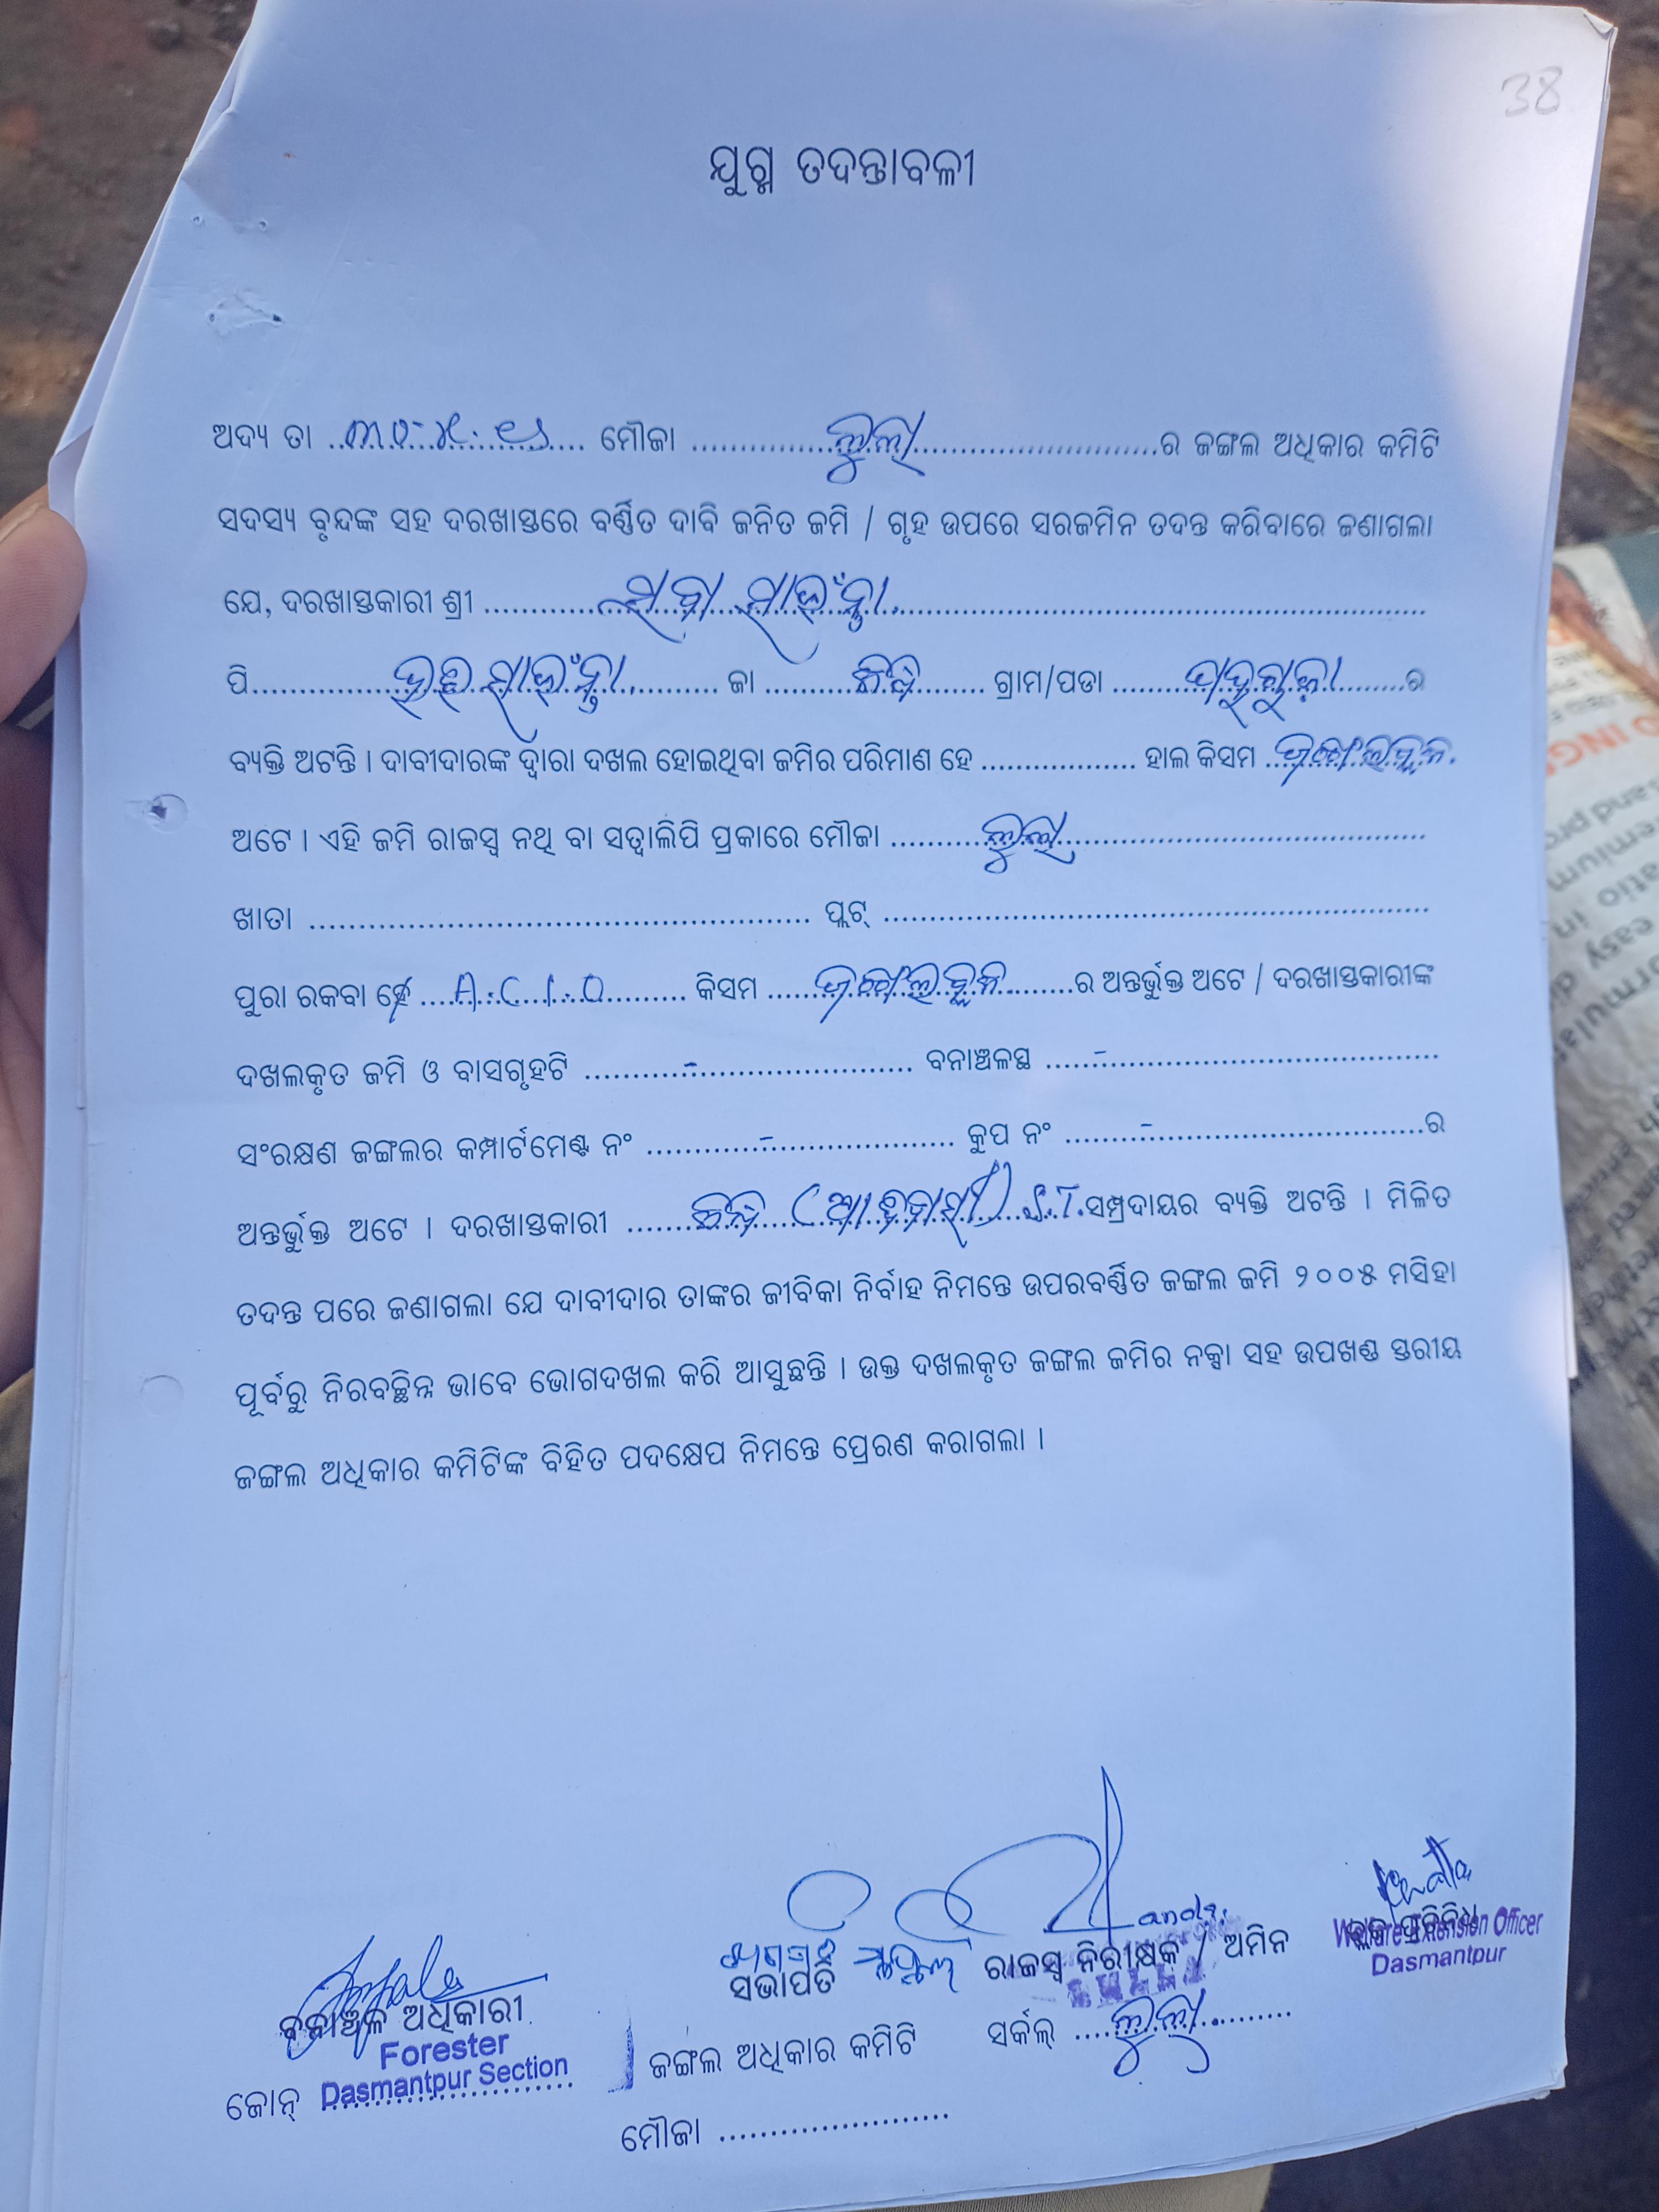 38
ଯୁଗ୍ମ ତଦନ୍ତାବଳୀ
ଅଦ୍ୟ ତା .......................... ମୌଜା ..............ଲୁଲା..........................ର ଜଙ୍ଗଲ ଅଧିକାର କମିଟି
ସଦସ୍ୟ ବୃନ୍ଦଙ୍କ ସହ ଦରଖାସ୍ତରେ ବର୍ଣ୍ଣିତ ଦାବି ଜନିତ ଜମି / ଗୃହ ଉପରେ ସରଜମିନ ତଦନ୍ତ କରିବାରେ ଜଣାଗଲା
ଯେ, ଦରଖାସ୍ତକାରୀ ଶ୍ରୀ ..............................................................................
ପି............................................. ଜା ...................... ଗ୍ରାମ/ପଡା ..............................ର
ବ୍ୟକ୍ତି ଅଟନ୍ତି । ଦାବୀଦାରଙ୍କ ଦ୍ୱାରା ଦଖଲ ହୋଇଥିବା ଜମିର ପରିମାଣ ହେ .................. ହାଲ କିସମ ....................
ଅଟେ । ଏହି ଜମି ରାଜସ୍ୱ ନଥି ବା ସତ୍ୱାଲିପି ପ୍ରକାରେ ମୌଜା ..........ଲୁଲା....................................
ଖାତା .................................................. ପ୍ଲଟ୍ .......................................................
ପୁରା ରକବା ହେ .....A.C 1.0......... କିସମ ..............................ର ଅନ୍ତର୍ଭୁକ୍ତ ଅଟେ / ଦରଖାସ୍ତକାରୀଙ୍କ
ଦଖଲକୃତ ଜମି ଓ ବାସଗୃହଟି ..........-...................... ବନାଞ୍ଚଳସ୍ଥ .....-.................................
ସଂରକ୍ଷଣ ଜଙ୍ଗଲର କମ୍ପାର୍ଟମେଣ୍ଟ ନଂ ............-.................. କୁପ ନଂ ........-...........................ର
ଅନ୍ତର୍ଭୁକ୍ତ ଅଟେ । ଦରଖାସ୍ତକାରୀ ................................ S.T. ସମ୍ପ୍ରଦାୟର ବ୍ୟକ୍ତି ଅଟନ୍ତି । ମିଳିତ
ତଦନ୍ତ ପରେ ଜଣାଗଲା ଯେ ଦାବୀଦାର ତାଙ୍କର ଜୀବିକା ନିର୍ବାହ ନିମନ୍ତେ ଉପରବର୍ଣ୍ଣିତ ଜଙ୍ଗଲ ଜମି ୨୦୦୫ ମସିହା
ପୂର୍ବରୁ ନିରବଚ୍ଛିନ୍ନ ଭାବେ ଭୋଗଦଖଲ କରି ଆସୁଛନ୍ତି । ଉକ୍ତ ଦଖଲକୃତ ଜଙ୍ଗଲ ଜମିର ନକ୍ସା ସହ ଉପଖଣ୍ଡ ସ୍ତରୀୟ
ଜଙ୍ଗଲ ଅଧିକାର କମିଟିଙ୍କ ବିହିତ ପଦକ୍ଷେପ ନିମନ୍ତେ ପ୍ରେରଣ କରାଗଲା ।
ବନାଞ୍ଚଳ ଅଧିକାରୀ
Forester
Dasmantpur Section
ଜୋନ୍ ........................
ସଭାପତି
ଜଙ୍ଗଲ ଅଧିକାର କମିଟି
ମୌଜା .......................
ରାଜସ୍ୱ ନିରୀକ୍ଷକ / ଅମିନ
ସର୍କଲ୍ ....ଲୁଲା..........
ବ୍ଲକ ପ୍ରତିନିଧି
Welfare Extension Officer
Dasmantpur